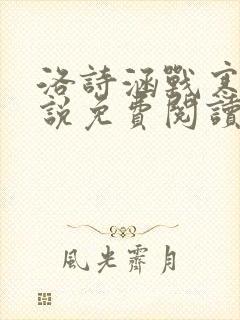 洛詩涵戰寒
說免費閱讀
風光霽月